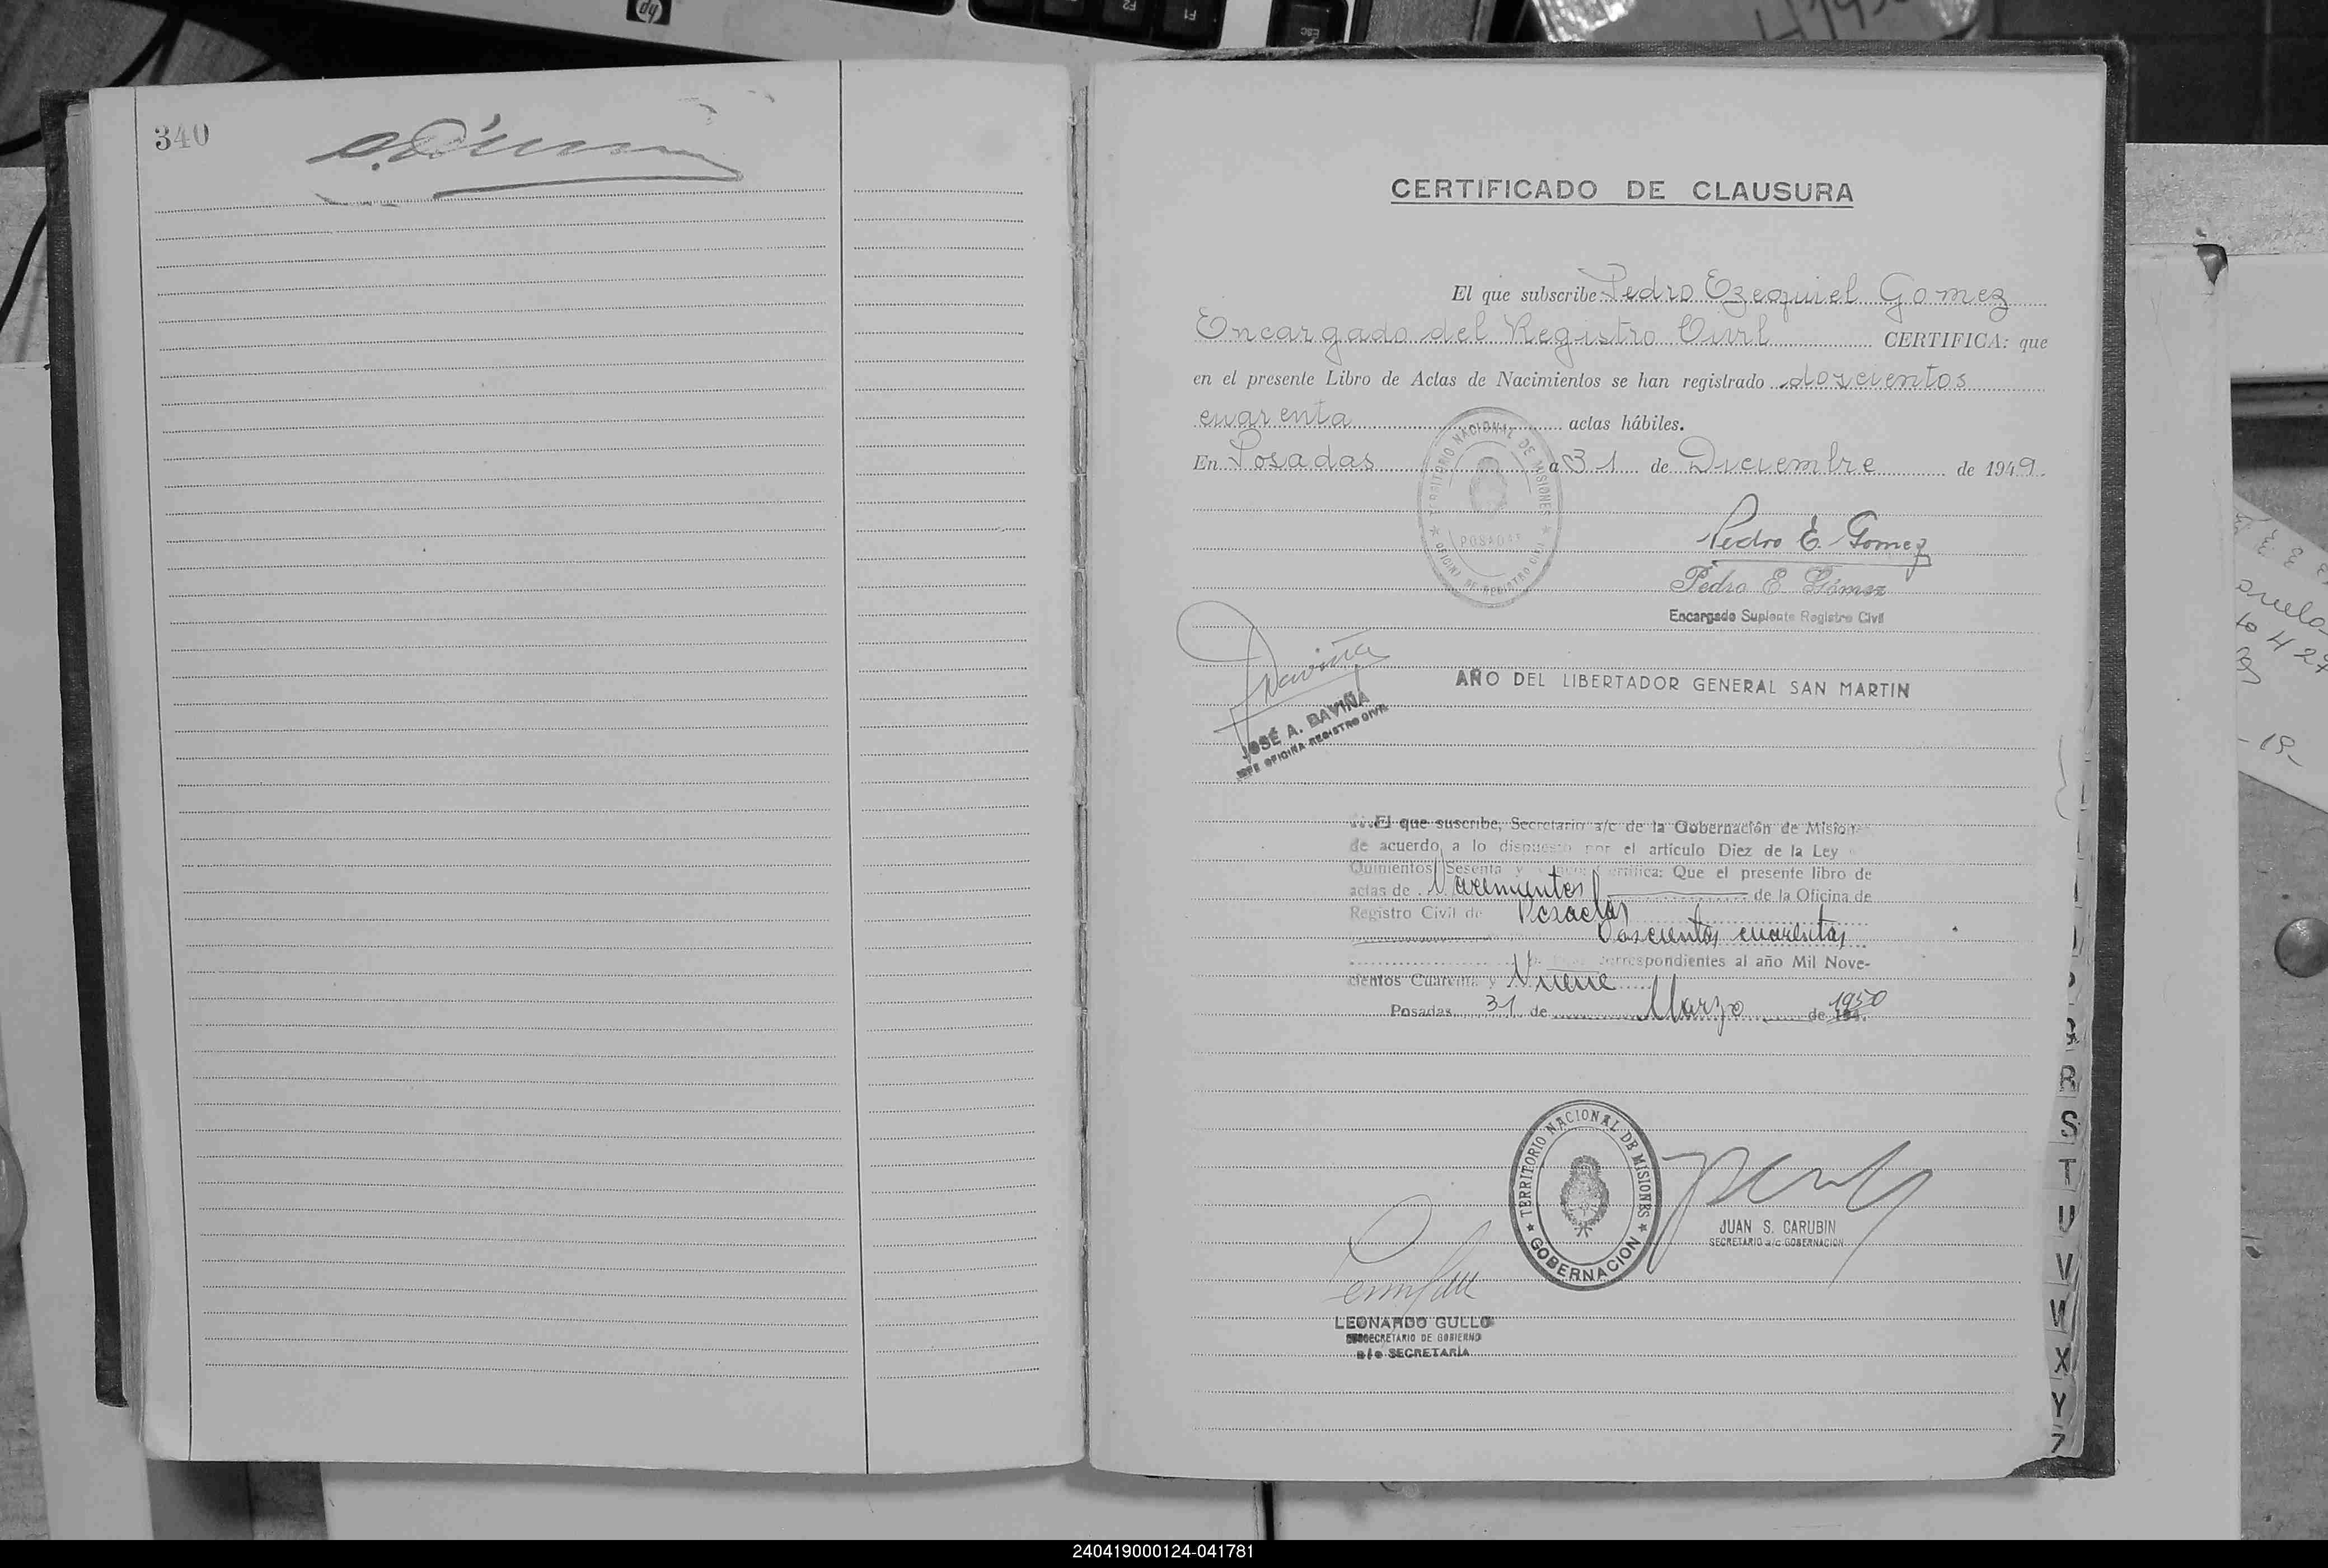 340
CERTIFICADO DE CLAUSURA
El que subscribe Pedro Ezequiel Gomez
Encargado del Registro Civil CERTIFICA: que
en el presente Libro de Actas de Nacimientos se han registrado doscientos
cuarenta actas hábiles.
En Posadas a 31 de Diciembre de 1949.
TERRITORIO NACIONAL DE MISIONES
POSADAS
OFICINA DE REGISTRO CIVIL
Pedro E. Gomez
Pedro E. Gómez
Encargado Suplente Registro Civil
JOSÉ A. BAVIÑA
JEFE OFICINA REGISTRO CIVIL
AÑO DEL LIBERTADOR GENERAL SAN MARTIN
El que suscribe, Secretario a/c de la Gobernación de Misiones
de acuerdo a lo dispuesto por el artículo Diez de la Ley
Quinientos Sesenta y Certifica: Que el presente libro de
actas de Nacimientos de la Oficina de
Registro Civil de Posadas
Doscientas cuarentas
correspondientes al año Mil Nove-
cientos Cuarenta y Nueve
Posadas, 31 de Marzo de 1950
TERRITORIO NACIONAL DE MISIONES
GOBERNACION
JUAN S. CARUBIN
SECRETARIO a/c GOBERNACION
LEONARDO GULLO
SUBSECRETARIO DE GOBIERNO
a/c SECRETARIA
R
S
T
U
V
W
X
Y
Z
240419000124-041781